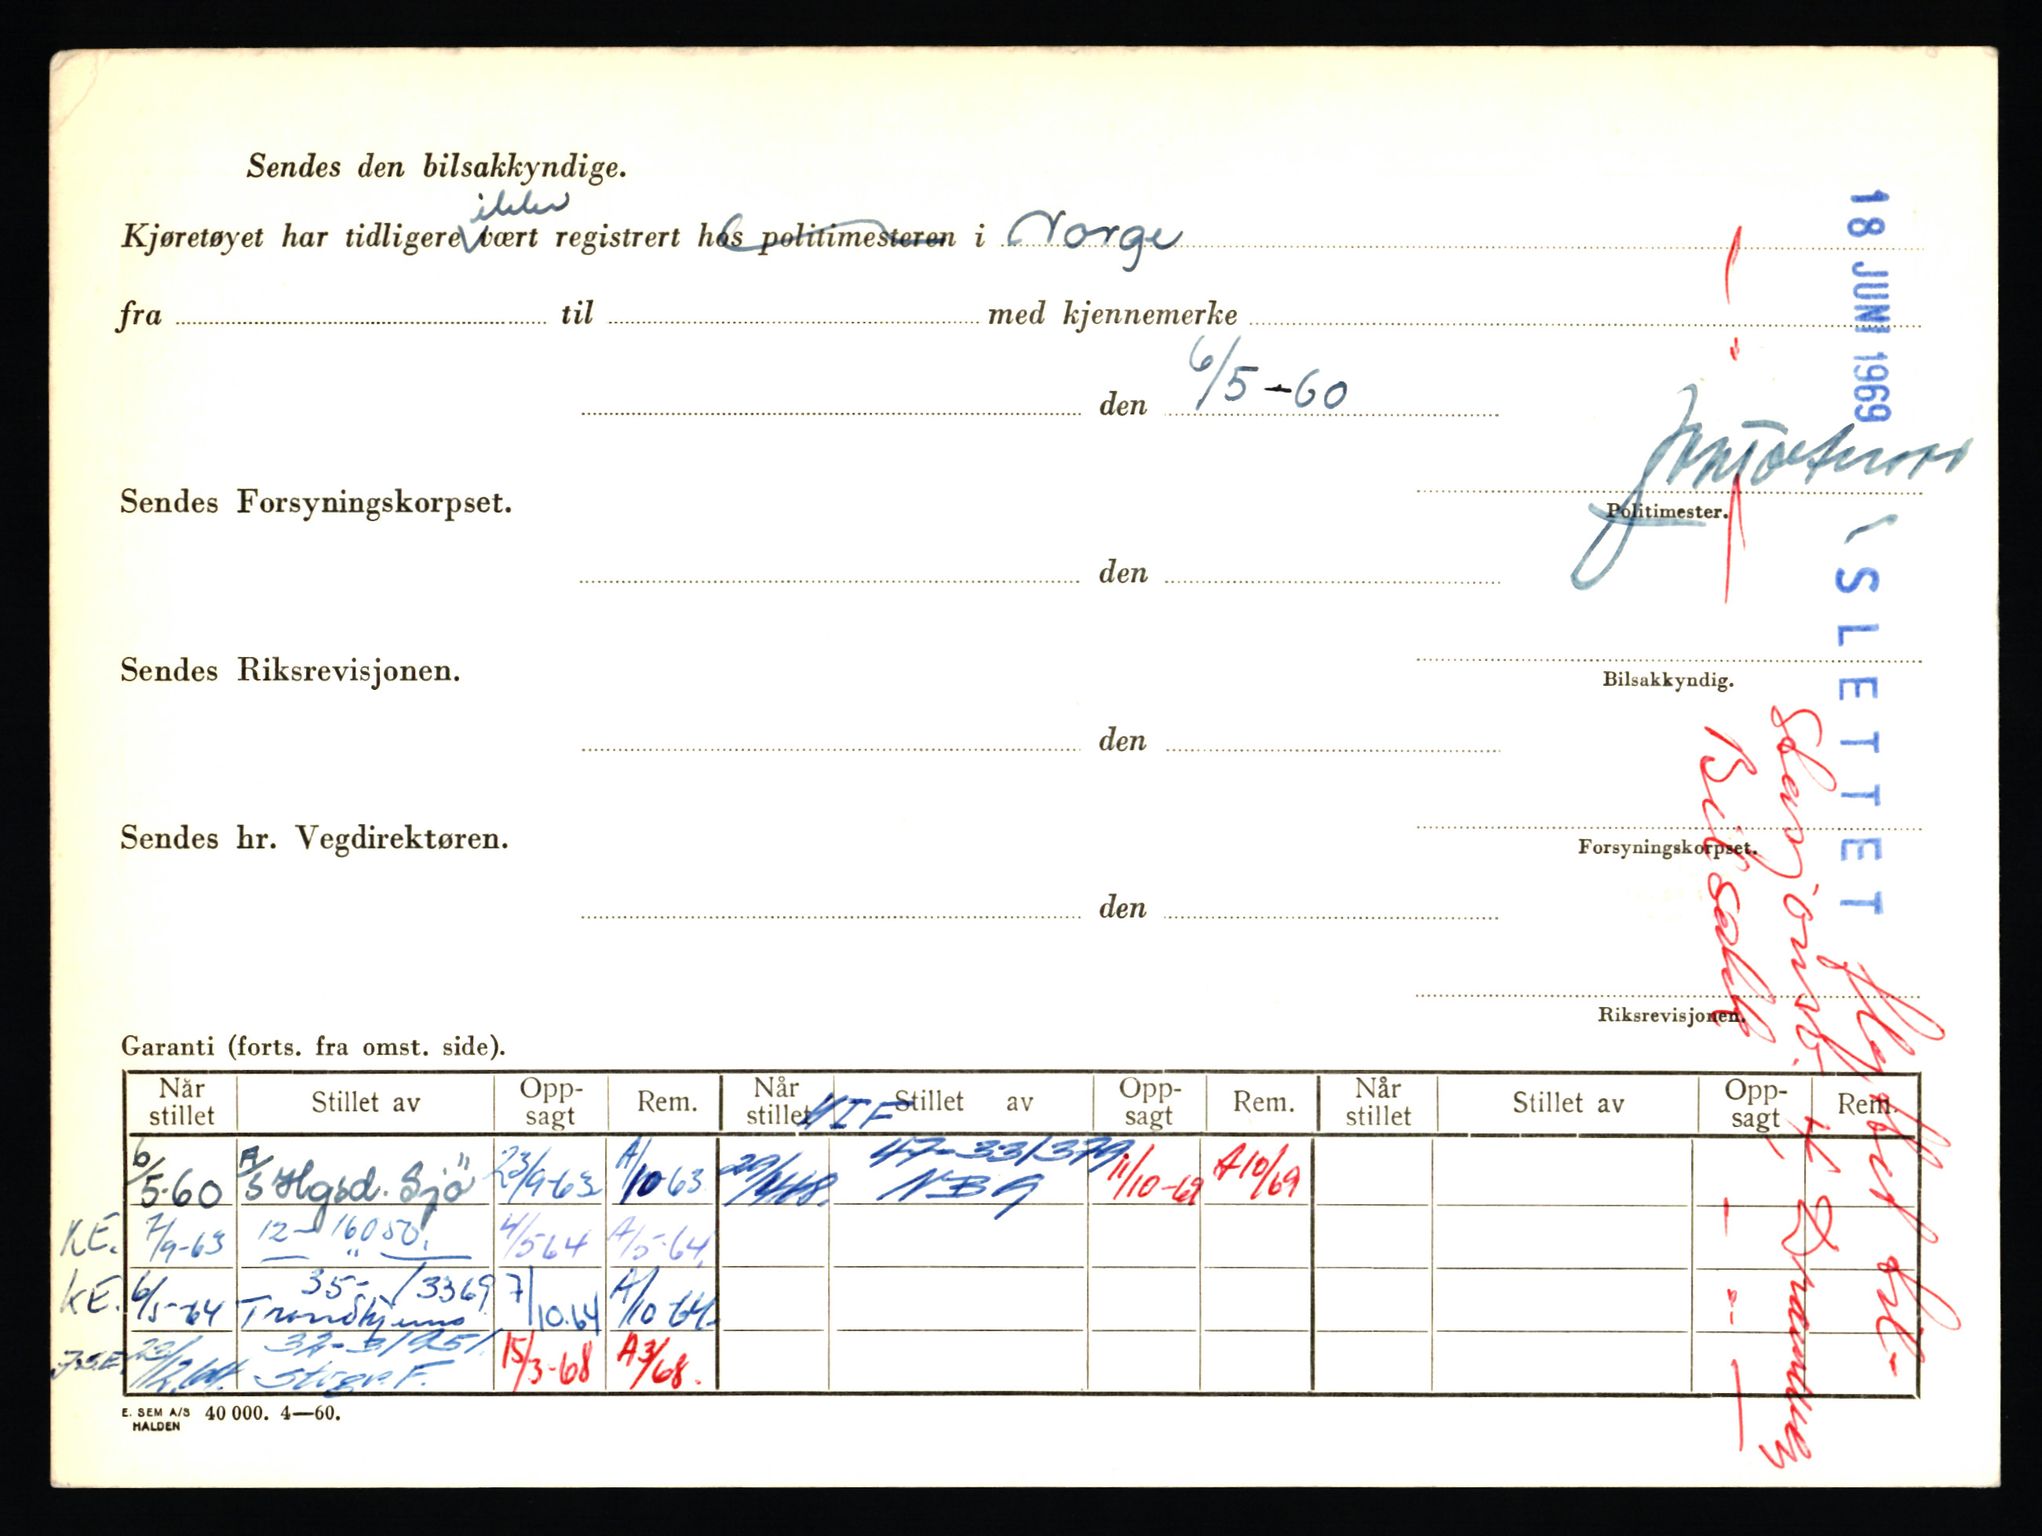 Sendes den bilsakkyndige.
ikke
Kjøretøyet har tidligere vært registrert hos politimesteren i Norge
fra til med kjennemerke
den 6/5-60
Sendes Forsyningskorpset.
Politimester.
den
Sendes Riksrevisjonen.
Bilsakkyndig.
den
Sendes hr. Vegdirektøren.
Forsyningskorpset.
den
Riksrevisjonen.
18 JUNI 1969
SLETTET
Bilsakk
Garanti (forts. fra omst. side).
Når stillet Stillet av Opp-sagt Rem. Når stillet Stillet av Opp-sagt Rem. Når stillet Stillet av Opp-sagt Rem.
6/5-60 A/S Hgsd. Sjö 23/9-63 A/10-63 47-331379 NBG 11/10-69 A10/69
KE. 7/9-63 12-16050 " 4/5-64 A/5-64.
KE. 6/5-64 35-13369 Trondhjems 7/10.64 A/10-64.
15/3-68 A3/68.
E. SEM A/S HALDEN 40 000. 4—60.